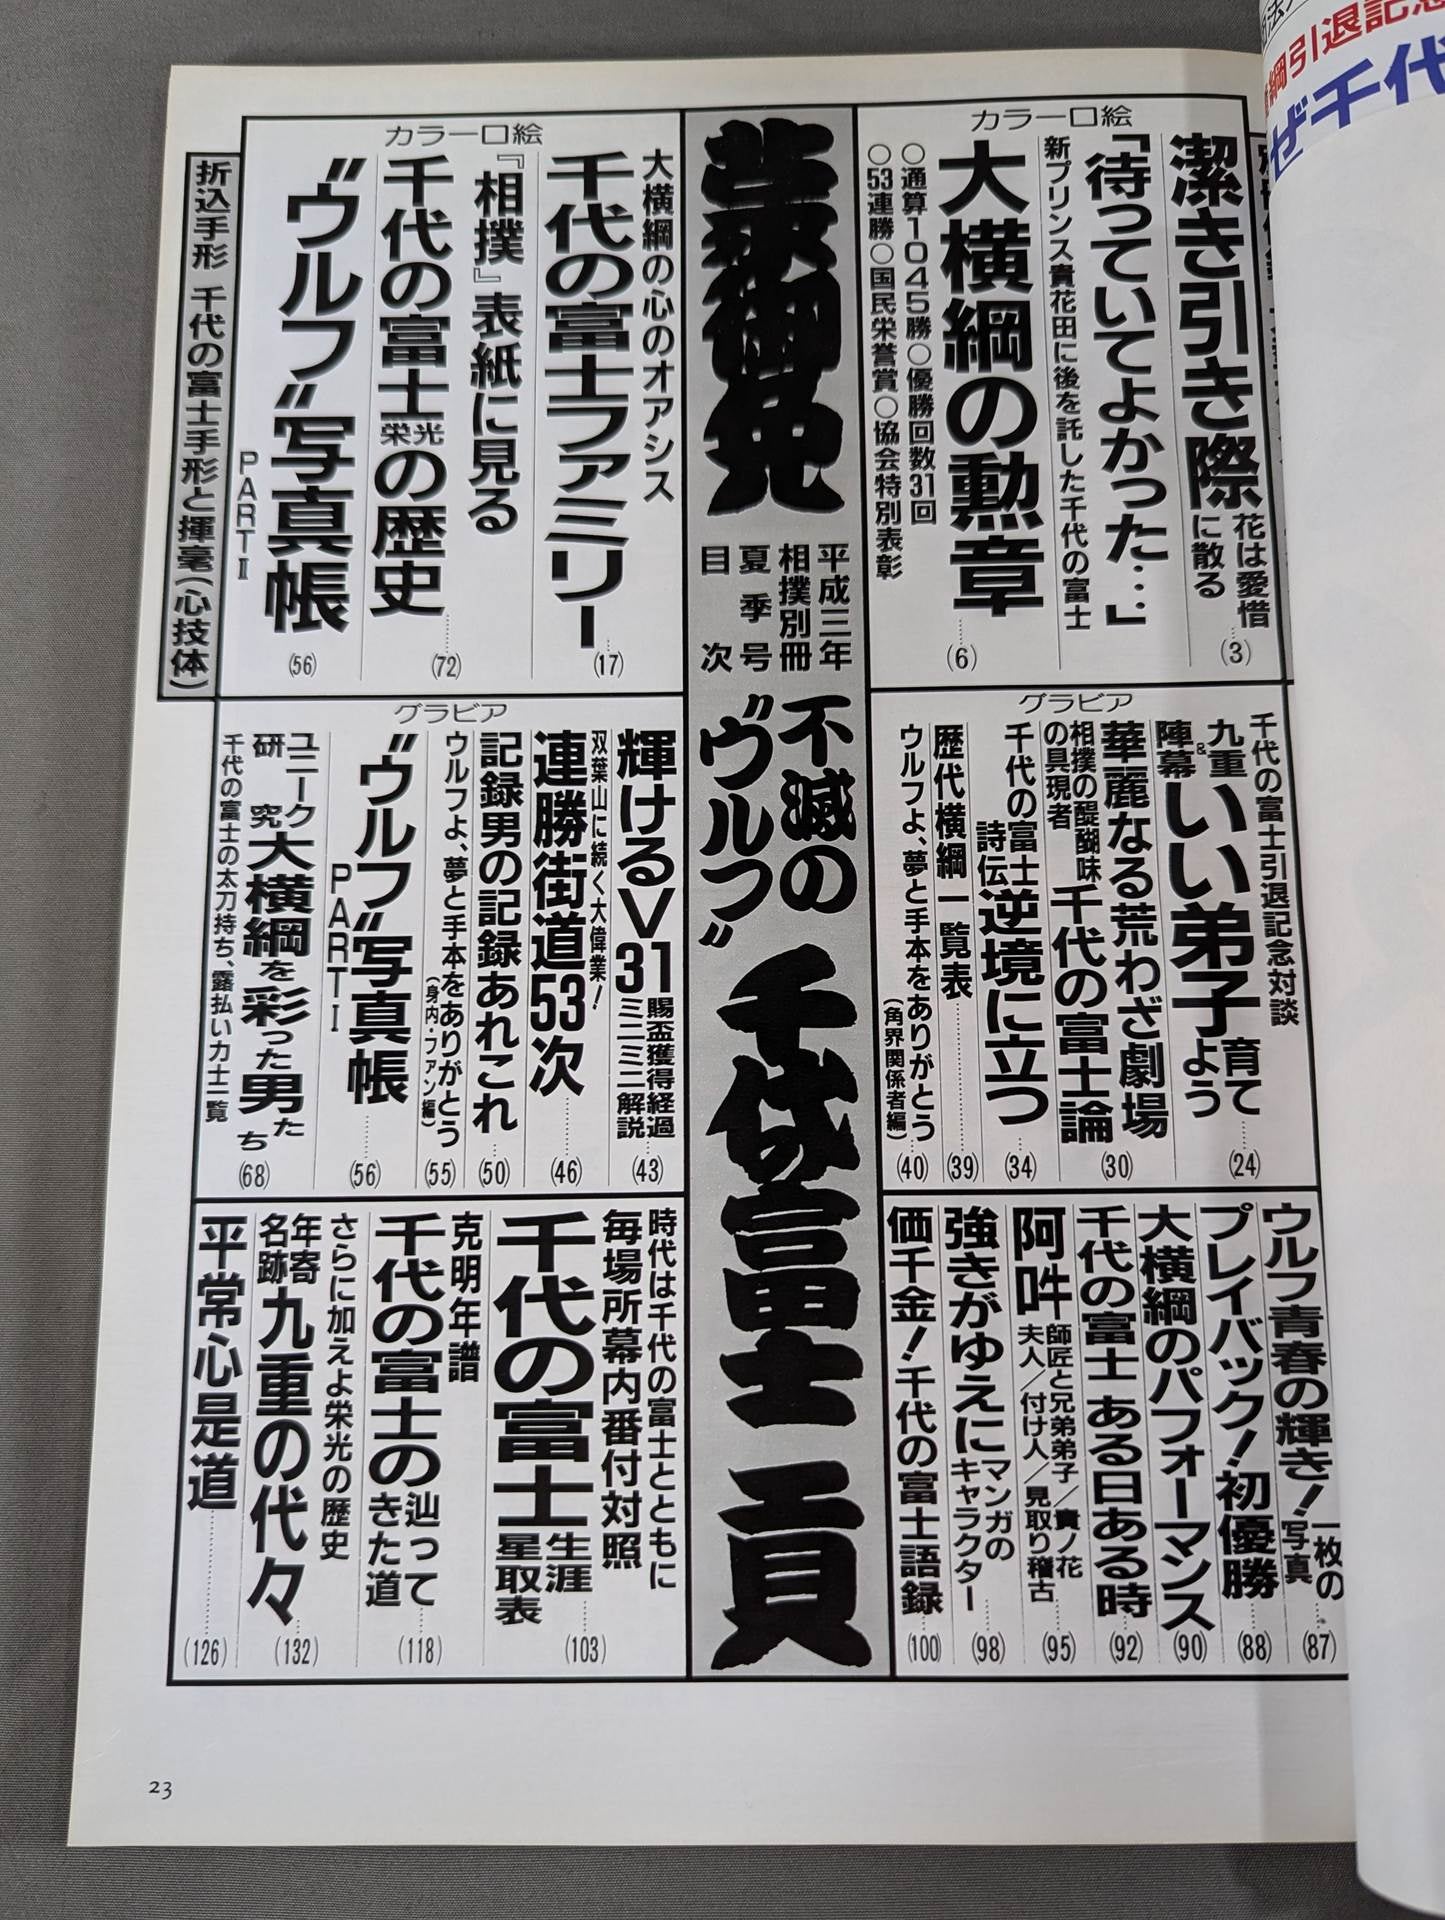 カラー口絵
潔き引き際
花は愛惜に散る
(3)
「待っていてよかった…」
新プリンス貴花田に後を託した千代の富士
大横綱の勲章
○通算1045勝○優勝回数31回
○53連勝○国民栄誉賞○協会特別表彰
(6)
蒙御免
平成三年
相撲別冊
夏季号
目次
不滅の
“ウルフ”
千代の富士 貢
カラー口絵
大横綱の心のオアシス
千代の富士ファミリー
(17)
『相撲』表紙に見る
千代の富士栄光の歴史
(72)
“ウルフ”写真帳
PARTⅡ
(56)
折込手形 千代の富士手形と揮毫(心技体)
グラビア
千代の富士引退記念対談
九重&陣幕
いい弟子育てよう
(24)
華麗なる荒わざ劇場
相撲の醍醐味の具現者
千代の富士論
(30)
千代の富士詩伝
逆境に立つ
(34)
歴代横綱一覧表
(39)
ウルフよ、夢と手本をありがとう
(角界関係者編)
(40)
グラビア
輝けるV31
賜盃獲得経過ミニミニ解説
(43)
双葉山に続く大偉業!
連勝街道53次
(46)
記録男の記録あれこれ
(50)
ウルフよ、夢と手本をありがとう
(身内・ファン編)
(55)
“ウルフ”写真帳
PARTⅠ
(56)
ユニーク研究
大横綱を彩った男たち
千代の富士の太刀持ち、露払い力士一覧
(68)
ウルフ青春の輝き!
一枚の写真
(87)
プレイバック!初優勝
(88)
大横綱のパフォーマンス
(90)
千代の富士 ある日ある時
(92)
阿吽
師匠と兄弟弟子/貴ノ花
夫人/付け人/見取り稽古
(95)
強きがゆえに
マンガのキャラクター
(98)
価千金!千代の富士語録
(100)
時代は千代の富士とともに
毎場所幕内番付対照
千代の富士
生涯星取表
(103)
克明年譜
千代の富士の
辿ってきた道
(118)
さらに加えよ栄光の歴史
年寄名跡
九重の代々
(132)
平常心是道
(126)
23
綱引退記念
ぜ千代